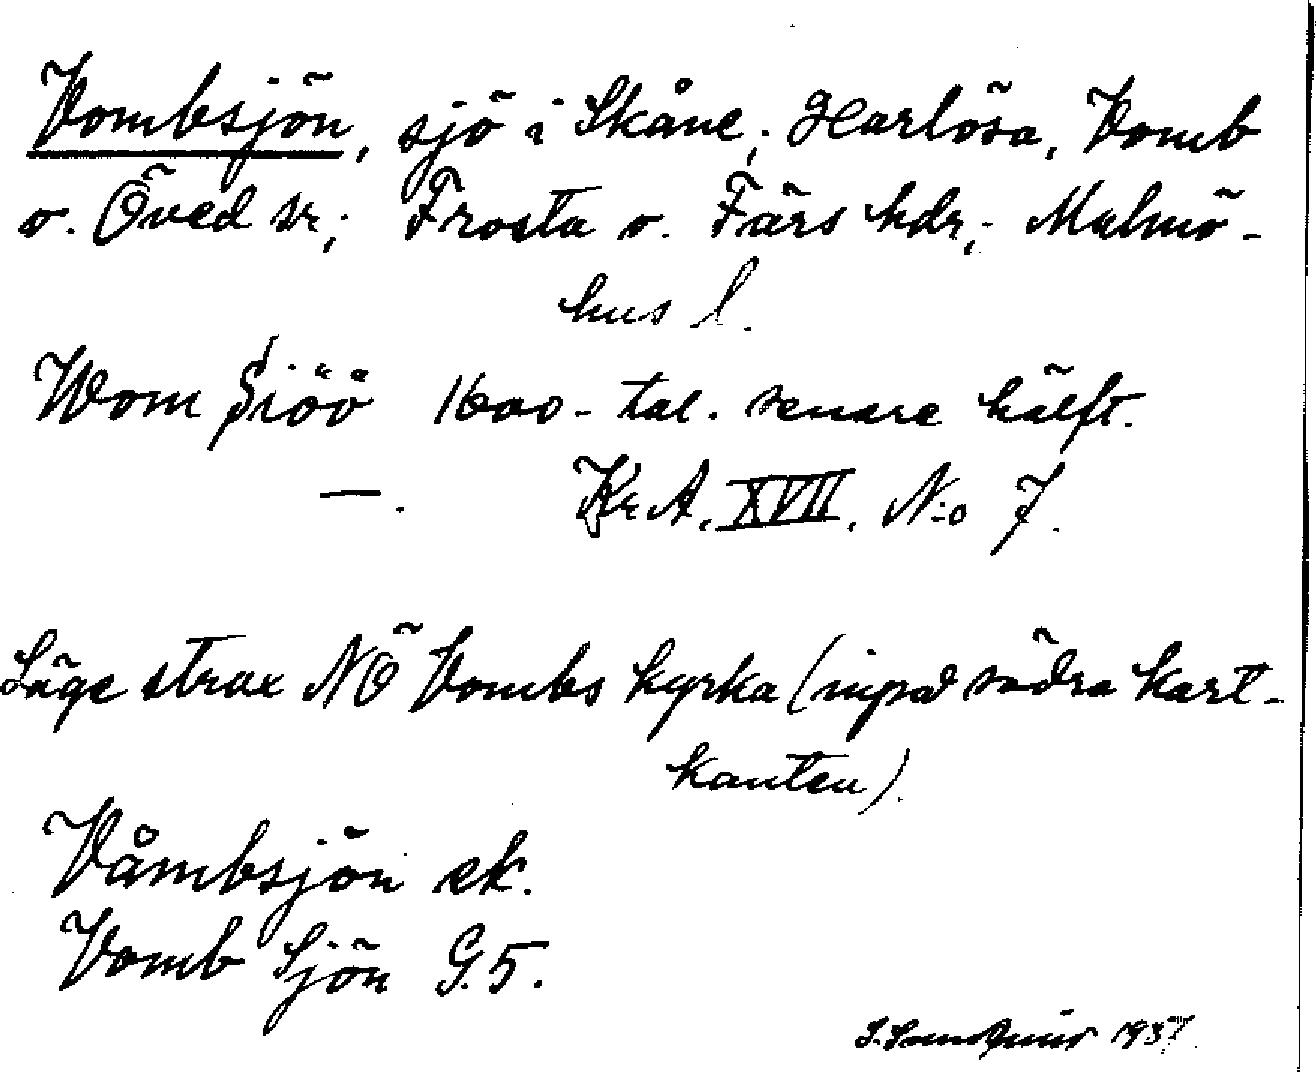 Vombsjön, sjö i Skåne; Harlösa, Vomb
o. Öved sr; Frosta o. Färs hdr; Malmö-
hus l.
Wom Siöö 1600-tal. senare hälft.
—. Kr.A. XVII. N:o 7.
Läge strax NÖ Vombs kyrka (inpå södra kart-
kanten).
Våmbsjön ek.
Vomb Sjön G.5.
1937